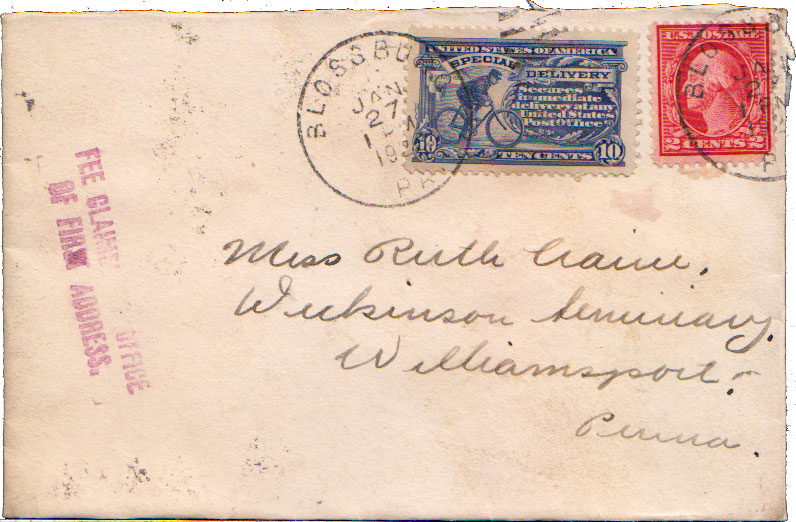 BLOSSBU
JAN
27
1
PA
UNITED STATES OF AMERICA
SPECIAL DELIVERY
Secures
immediate
delivery at any
United States
Post Office
10 TEN CENTS 10
U.S. POSTAGE
2 CENTS 2
BLOSSB
JAN
P
FEE CLAIM OFFICE
OF FIRM ADDRESS.
Miss Ruth
Wickinson Seminary,
Williamsport,
Penna.